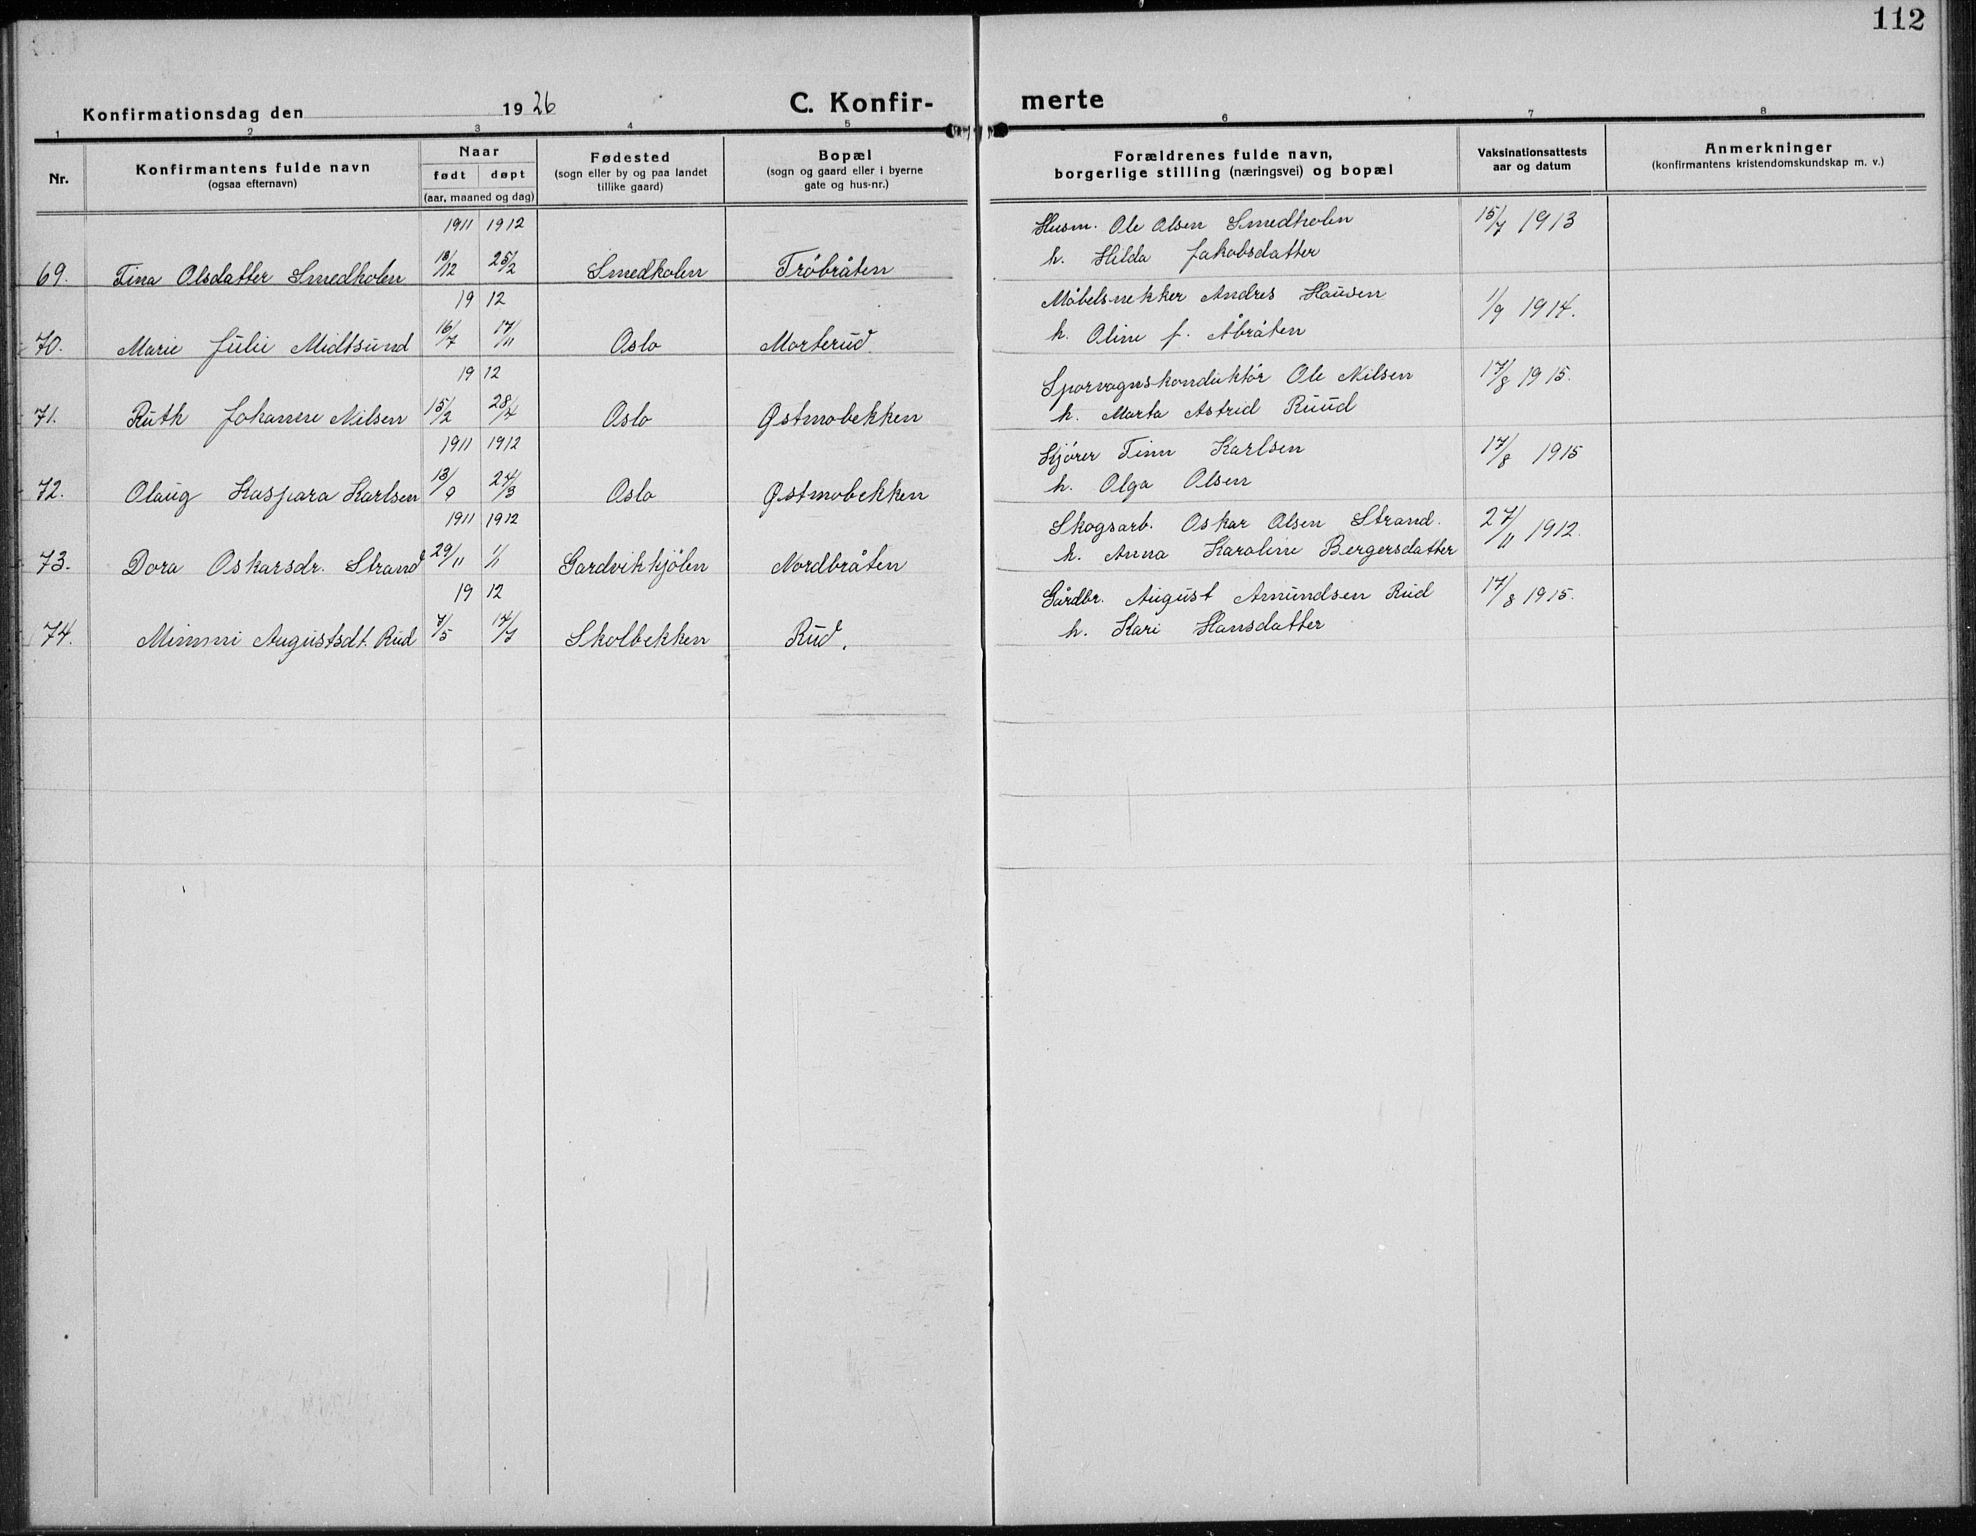 112
Konfirmationsdag den 1926 C. Konfir- merte
1 2 3 4 5 6 7 8
Nr. Konfirmantens fulde navn (ogsaa efternavn) Naar født døpt (aar, maaned og dag) Fødested (sogn eller by og paa landet tillike gaard) Bopæl (sogn og gaard eller i byerne gate og hus-nr.) Forældrenes fulde navn, borgerlige stilling (næringsvei) og bopæl Vaksinationsattests aar og datum Anmerkninger (konfirmantens kristendomskundskap m. v.)
1911 1912 Husm. Ole Olsen Smedholen 15/7 1913
69. Tina Olsdatter Smedholen 13/12 25/2 Smedholen Tröbråten h. Hilda Jakobsdatter
19 12 Möbelsnekker Andres Hansen 1/9 1914.
70. Marie Julie Midtsund 16/7 17/11 Oslo Morterud. h. Oline f. Åbråten
19 12 Sporvognskonduktör Ole Nilsen 17/8 1915.
71. Ruth Johanne Nilsen 15/2 28/4 Oslo Østmobekken h. Marta Astrid Ruud
1911 1912 Kjörer Finn Karlsen 17/8 1915
72. Olaug Kaspara Karlsen 13/9 24/3 Oslo Østmobekken h. Olga Olsen
1911 1912 Skogsarb. Oskar Olsen Strand. 27/11 1912.
73. Dora Oskarsdr. Strand 29/11 1/1 Gardvikkjölen Nordbråten h. Anna Karoline Bergersdatter
19 12 Gårdbr. August Amundsen Rud 17/8 1915.
74. Mimmi Augustsdt. Rud 7/5 14/7 Skolbekken Rud. h. Kari Hansdatter